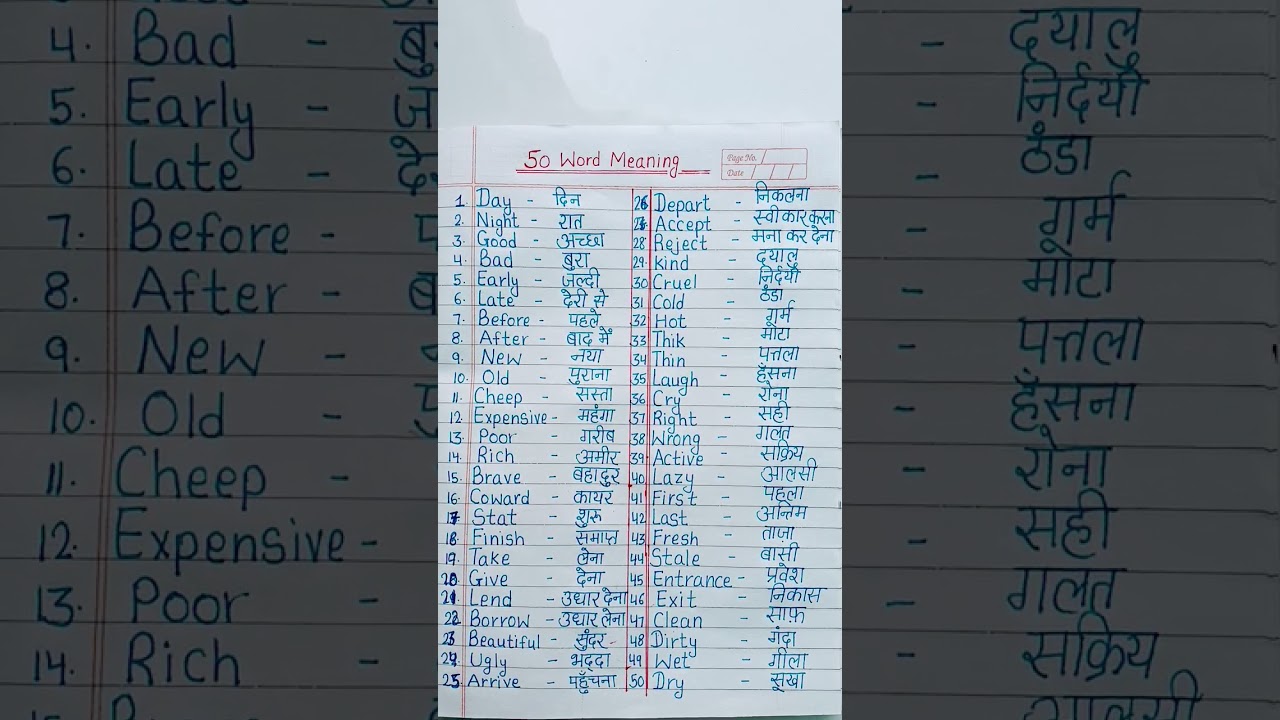 4. Bad -
5. Early -
6. Late -
7. Before -
8. After -
9. New -
10. Old -
11. Cheep -
12. Expensive -
13. Poor -
14. Rich -
50 Word Meaning
Page No.
Date
1. Day - दिन
2. Night - रात
3. Good - अच्छा
4. Bad - बुरा
5. Early - जल्दी
6. Late - देरी से
7. Before - पहले
8. After - बाद में
9. New - नया
10. Old - पुराना
11. Cheep - सस्ता
12 Expensive - महंगा
13. Poor - गरीब
14. Rich - अमीर
15. Brave - बहादुर
16. Coward - कायर
17. Stat - शुरू
18. Finish - समाप्त
19. Take - लेना
20. Give - देना
21. Lend - उधार देना
22. Borrow - उधार लेना
23. Beautiful - सुंदर
24. Ugly - भद्दा
25. Arrive - पहुँचना
26 Depart - निकलना
27 Accept - स्वीकार करना
28 Reject - मना कर देना
29. Kind - दयालु
30 Cruel - निर्दयी
31 Cold - ठंडा
32 Hot - गर्म
33 Thik - मोटा
34 Thin - पत्तला
35 Laugh - हँसना
36 Cry - रोना
37 Right - सही
38 Wrong - गलत
39 Active - सक्रिय
40 Lazy - आलसी
41 First - पहला
42 Last - अन्तिम
43 Fresh - ताज़ा
44 Stale - बासी
45 Entrance - प्रवेश
46 Exit - निकास
47 Clean - साफ़
48 Dirty - गंदा
49 Wet - गीला
50 Dry - सूखा
- दयालु
- निर्दयी
- ठंडा
- गर्म
- मोटा
- पत्तला
- हँसना
- रोना
- सही
- गलत
- सक्रिय